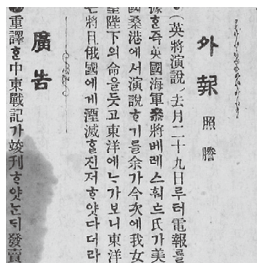 外報 照謄
(英將演說)去月二十九日루터電報를
據ᄒᆞᆫ즉英國海軍叅將베레스훠드氏가美
國桑港에셔演說ᄒᆞ기를余가今次에我女
皇陛下의命을듯고東洋에ᄂᆞ가보니東洋
은將日俄國에게湮滅ᄒᆞᆯ진져ᄒᆞ얏다더라
廣告
重譯ᄒᆞᆫ中東戰記가竣刊ᄒᆞ얏ᄂᆞᆫᄃᆡ發賣